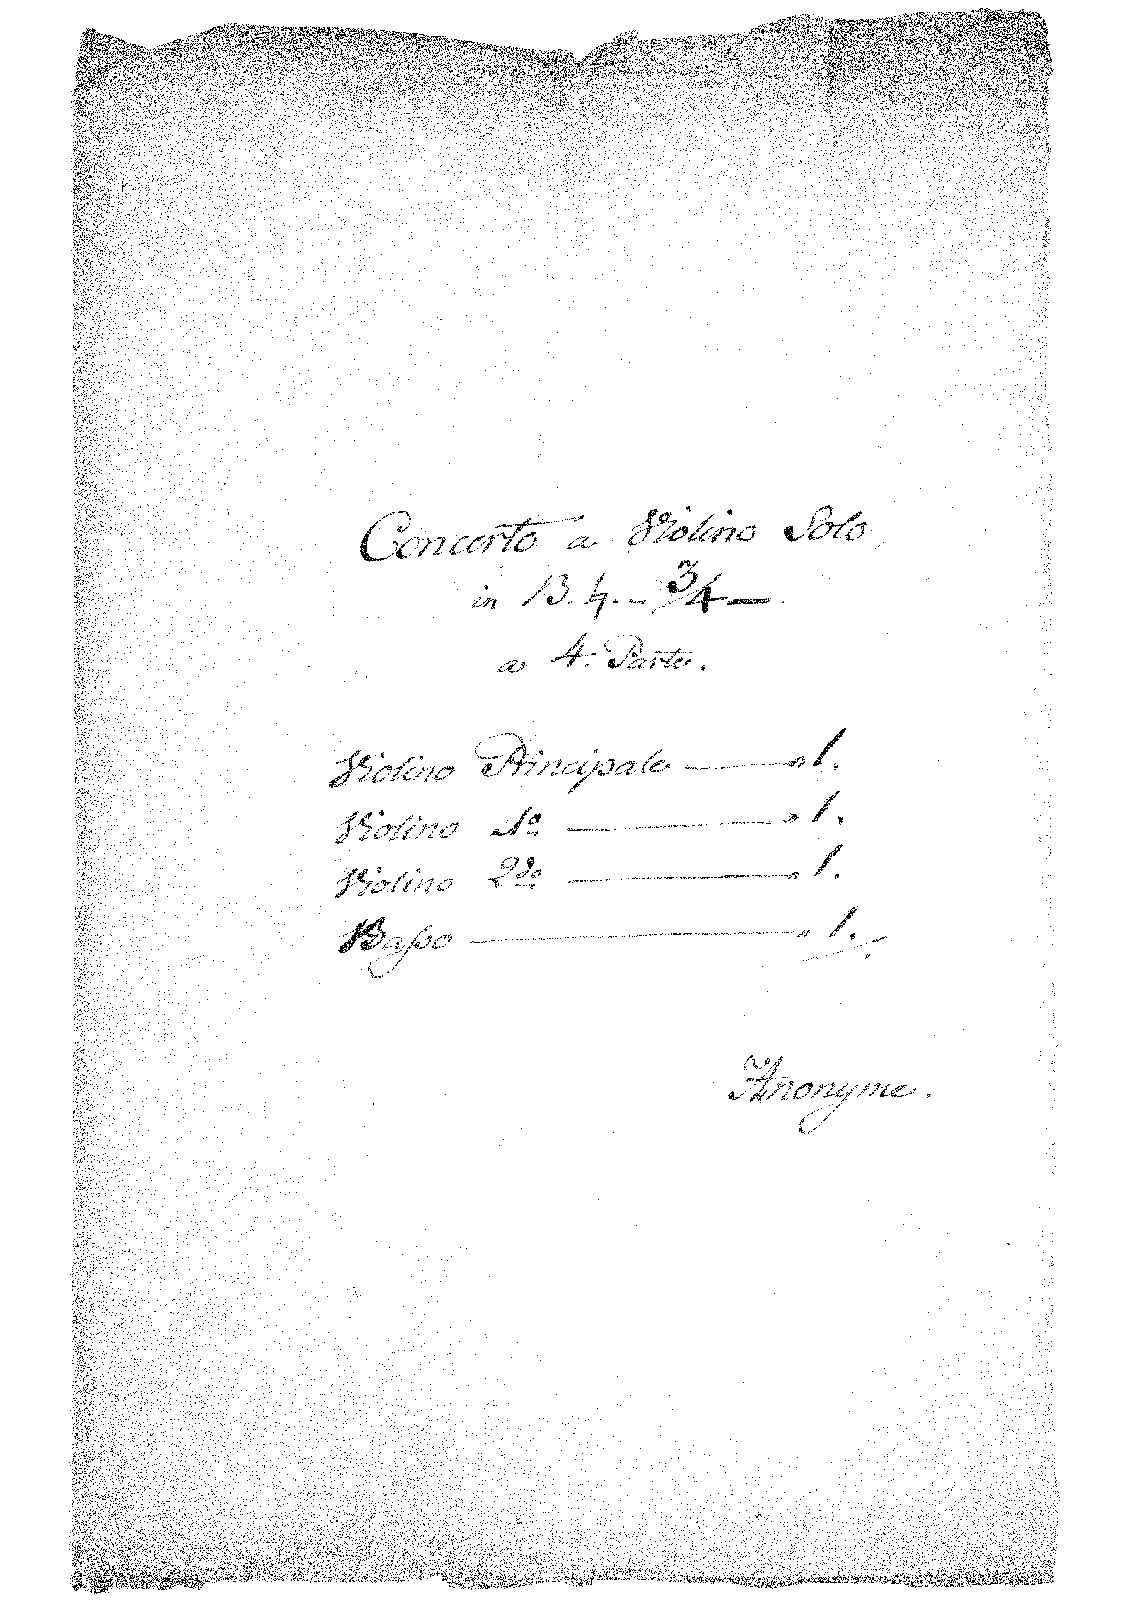 Concerto a Violino Solo
in B. ♮. – 3/4 –
a 4. Parte.
Violino Principale — " 1.
Violino 1º — " 1.
Violino 2do — " 1.
Baſso — " 1.
Anonyme.